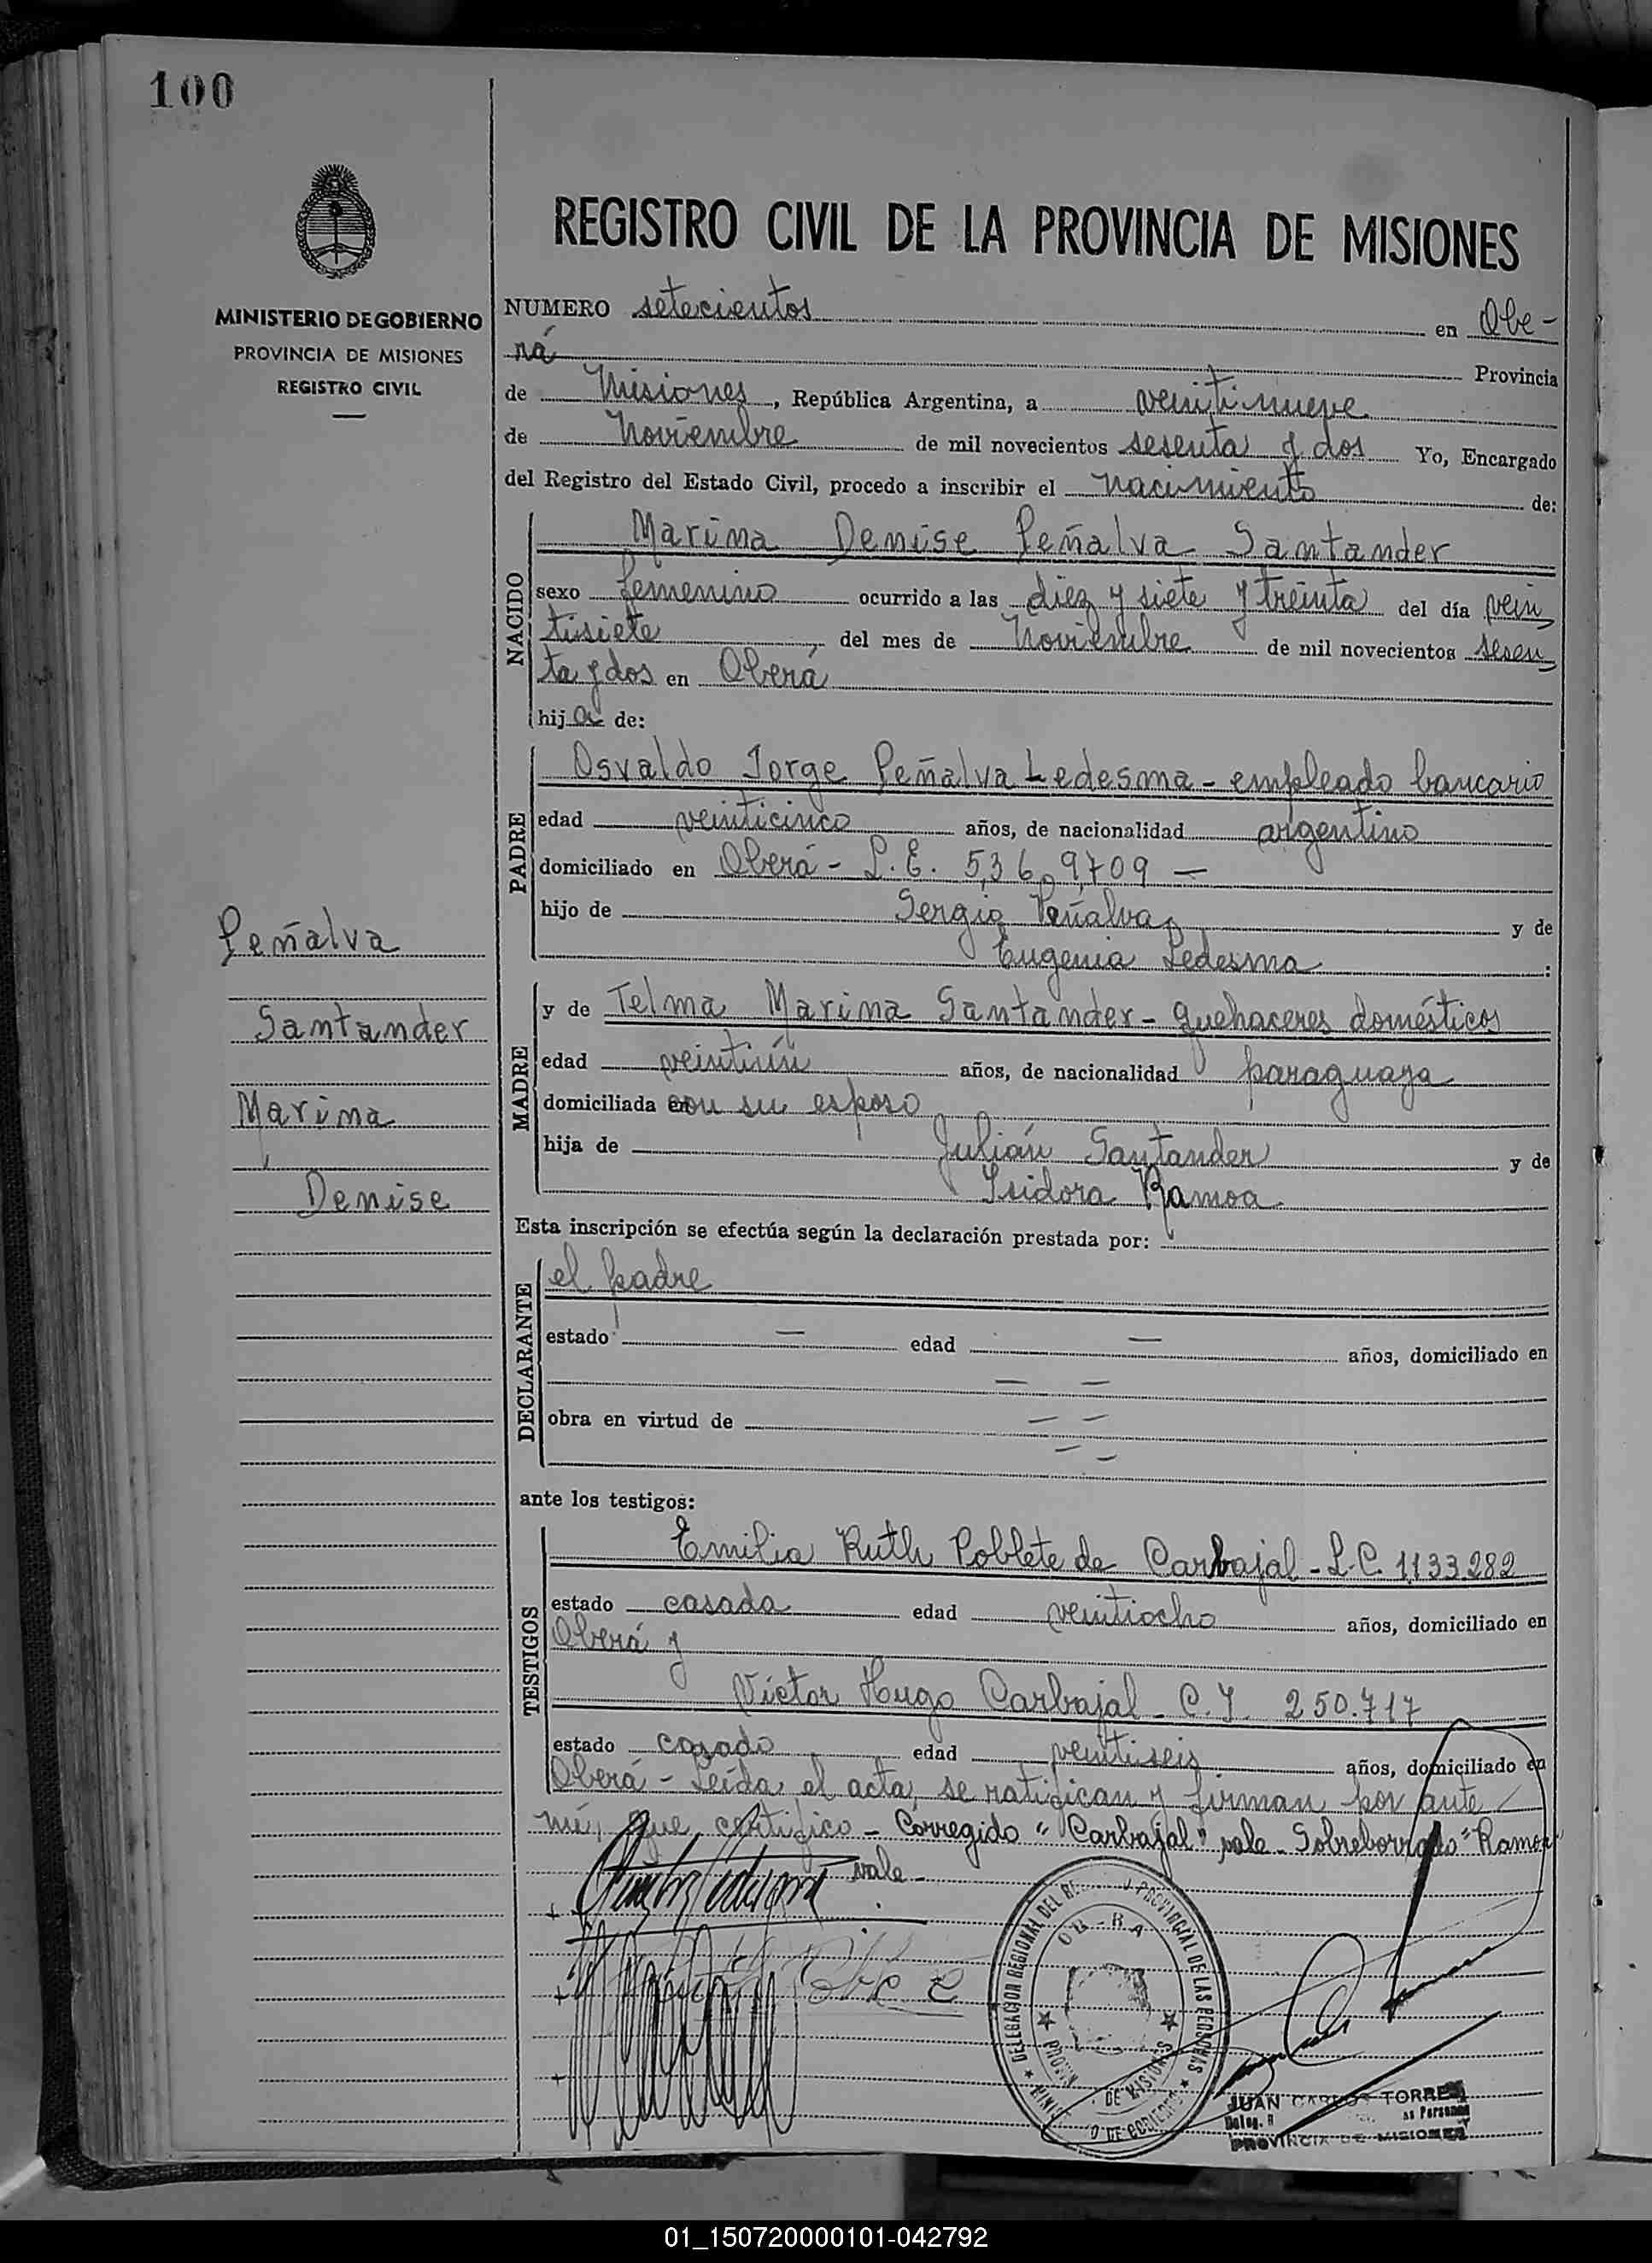 100
MINISTERIO DE GOBIERNO
PROVINCIA DE MISIONES
REGISTRO CIVIL
REGISTRO CIVIL DE LA PROVINCIA DE MISIONES
NUMERO setecientos en Obe-
rá Provincia
de Misiones, República Argentina, a veintinueve
de Noviembre de mil novecientos sesenta y dos Yo, Encargado
del Registro del Estado Civil, procedo a inscribir el nacimiento de:
NACIDO
Marina Denise Peñalva Santander
sexo femenino ocurrido a las diez y siete y treinta del día vein
tisiete del mes de Noviembre de mil novecientos sesen
ta y dos en Oberá
hija de:
PADRE
Osvaldo Jorge Peñalva Ledesma - empleado bancario
edad veinticinco años, de nacionalidad argentino
domiciliado en Oberá - L.E. 5,369,709 —
hijo de Sergio Peñalva y de
Eugenia Ledesma :
Peñalva
Santander
Marina
Denise
MADRE
y de Telma Marina Santander - quehaceres domésticos
edad veintiún años, de nacionalidad paraguaya
domiciliada con su esposo
hija de Julián Santander y de
Isidora Ramoa
Esta inscripción se efectúa según la declaración prestada por:
DECLARANTE
el padre
estado — edad — años, domiciliado en
— —
obra en virtud de — —
— —
ante los testigos:
TESTIGOS
Emilia Ruth Poblete de Carbajal - L.C. 1133.282
estado casada edad veintiocho años, domiciliado en
Oberá y
Víctor Hugo Carbajal - C.I. 250.717
estado casado edad veintiseis años, domiciliado en
Oberá - Leída el acta, se ratifican y firman por ante
mí, que certifico - Corregido "Carbajal" vale - Sobreborrado "Ramoa"
vale -
DELEGACION REGIONAL DEL PROVINCIAL DE LAS PERSONAS
DE MISIONES
JUAN CARLOS TORRES
PROVINCIA DE MISIONES
01_150720000101-042792